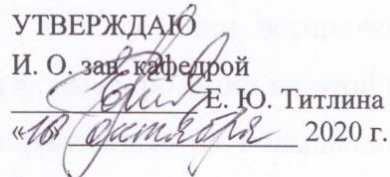 УТВЕРЖДАЮ
И. О. зав. кафедрой
Е. Ю. Титлина
«16» октября 2020 г.